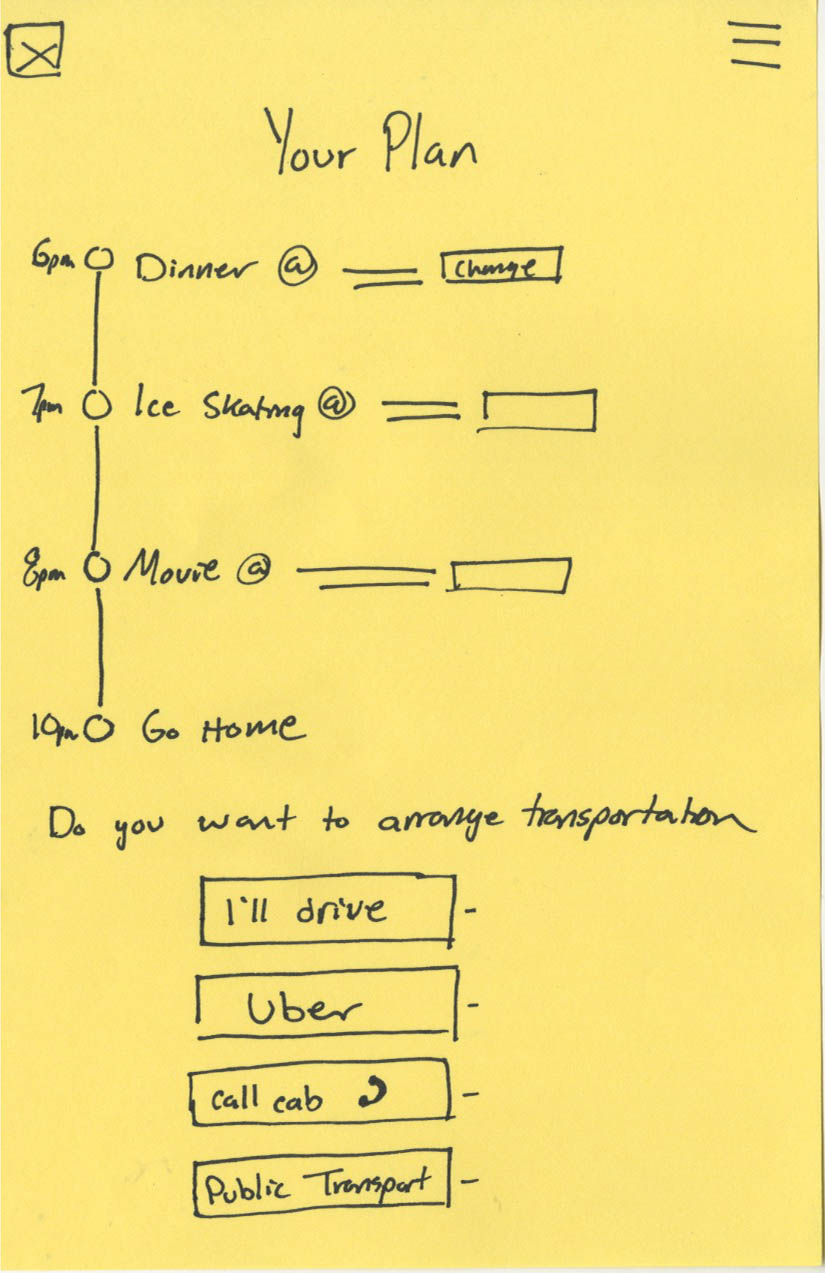 Your Plan
6pm Dinner @ change
7pm Ice Skating @
8pm Movie @
10pm Go Home
Do you want to arrange transportation
I'll drive -
Uber -
call cab -
Public Transport -